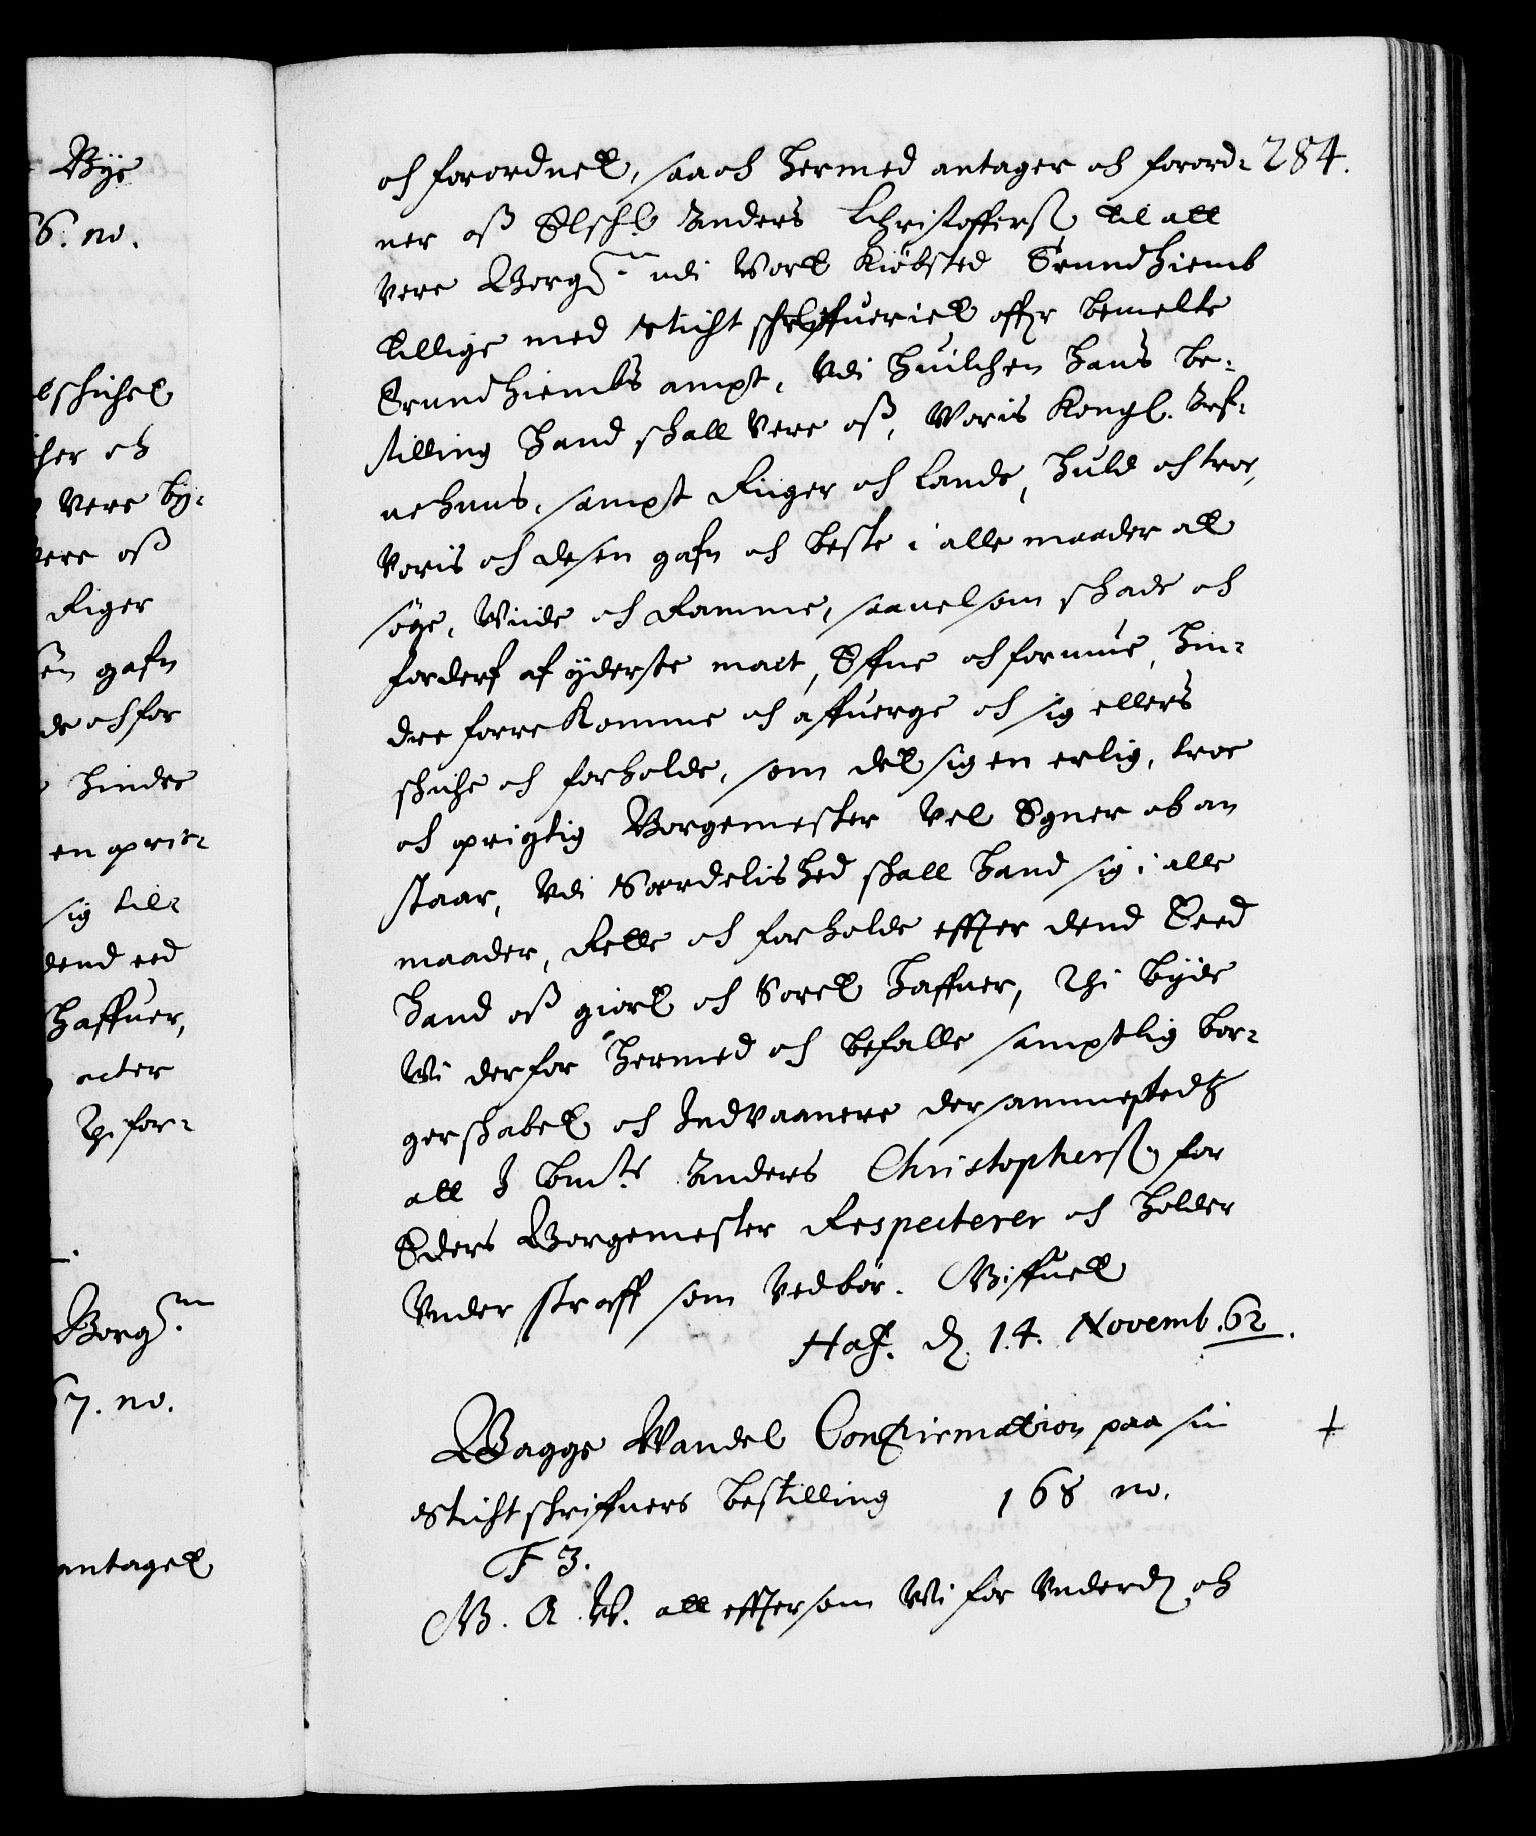 Bye
6. no.
bschichel
cher och
vere by-
vere oß
Riger
sen gafn
de och for
hindre
en opric-
sig til-
dend eed
haffuer,
acter
Thi for-
Borgm.
67. no.
antaget
284.
och forordnet, saa och hermed antager och forord-
ner oß Elschl. Anders Christofferß. til att
vere Borgm. udi Vort Kiøbsted Trundhiemb
tillige med sticht schriffueriet offr bemelte
Trundhiembs ampt, Udi huilchen hans be-
stilling hand skall vere oß, Voris Kongl. Arf-
uehuus, sampt Riiger och lande, huld och troe,
Voris och desen gafn och beste i alle maader att
søge, Viide och Ramme, saauelsom skade och
forderf af yderste mact, Effne och formue, hin-
dre forrekomme och affuerge och sig ellers
skiche och forholde, som det sig en erlig, troe
och oprigtig Borgemester Vel Egner och an
staar, Udi Særdelished skall hand sig i alle
maader, Rette och forholde effter dend Eed
hand oß giort och Soret haffuer, Thi byde
Wi derfor hermed och befalle samptlig bor-
gerskabet och Indvaanere dersammestedtz
att I bmte. Anders Christopherß. for
Eders Borgemester Respecterer och holder
Under straff som vedbør. Giffuet
Haf. d. 14. Novemb. 62.
Bagge Wandel Confirmation paa sin
Stichtskriffuers bestilling 168 no.
+
F 3.
G. A. W. att effter som Wi for Underd. och